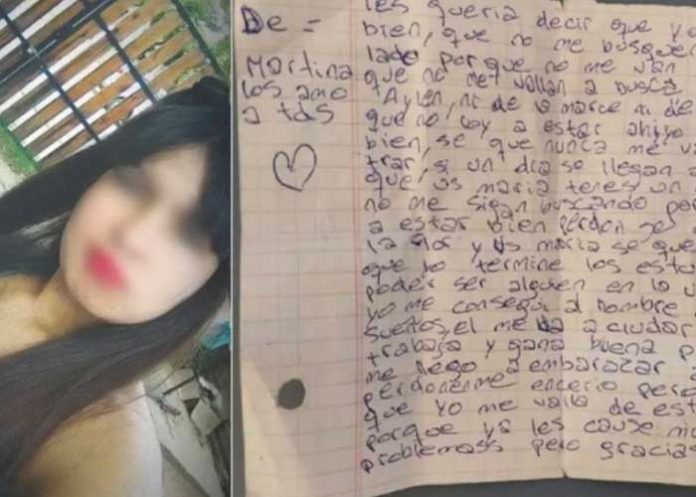 De =
Martina
los amo
a tds
les queria decir que yo
bien, que no me busque
lado porque no me van
que no me vallan a busca
Aylen, ni de la marce ni de
que no voy a estar ahi, yo
bien, se que nunca me va
trar, si un dia se llegan a
que us maria teres un
no me sigan buscando por
a estar bien perdon
la flor y us maria se que
que yo termine los esta
poder ser alguien en la
yo me consegui al hombre
sueños, el me va a ciudar
trabaja y gana buena p
me llego a embarazar
perdonenme encerio pero
que yo me valla de est
porque ya les cause mu
problemass pero gracia